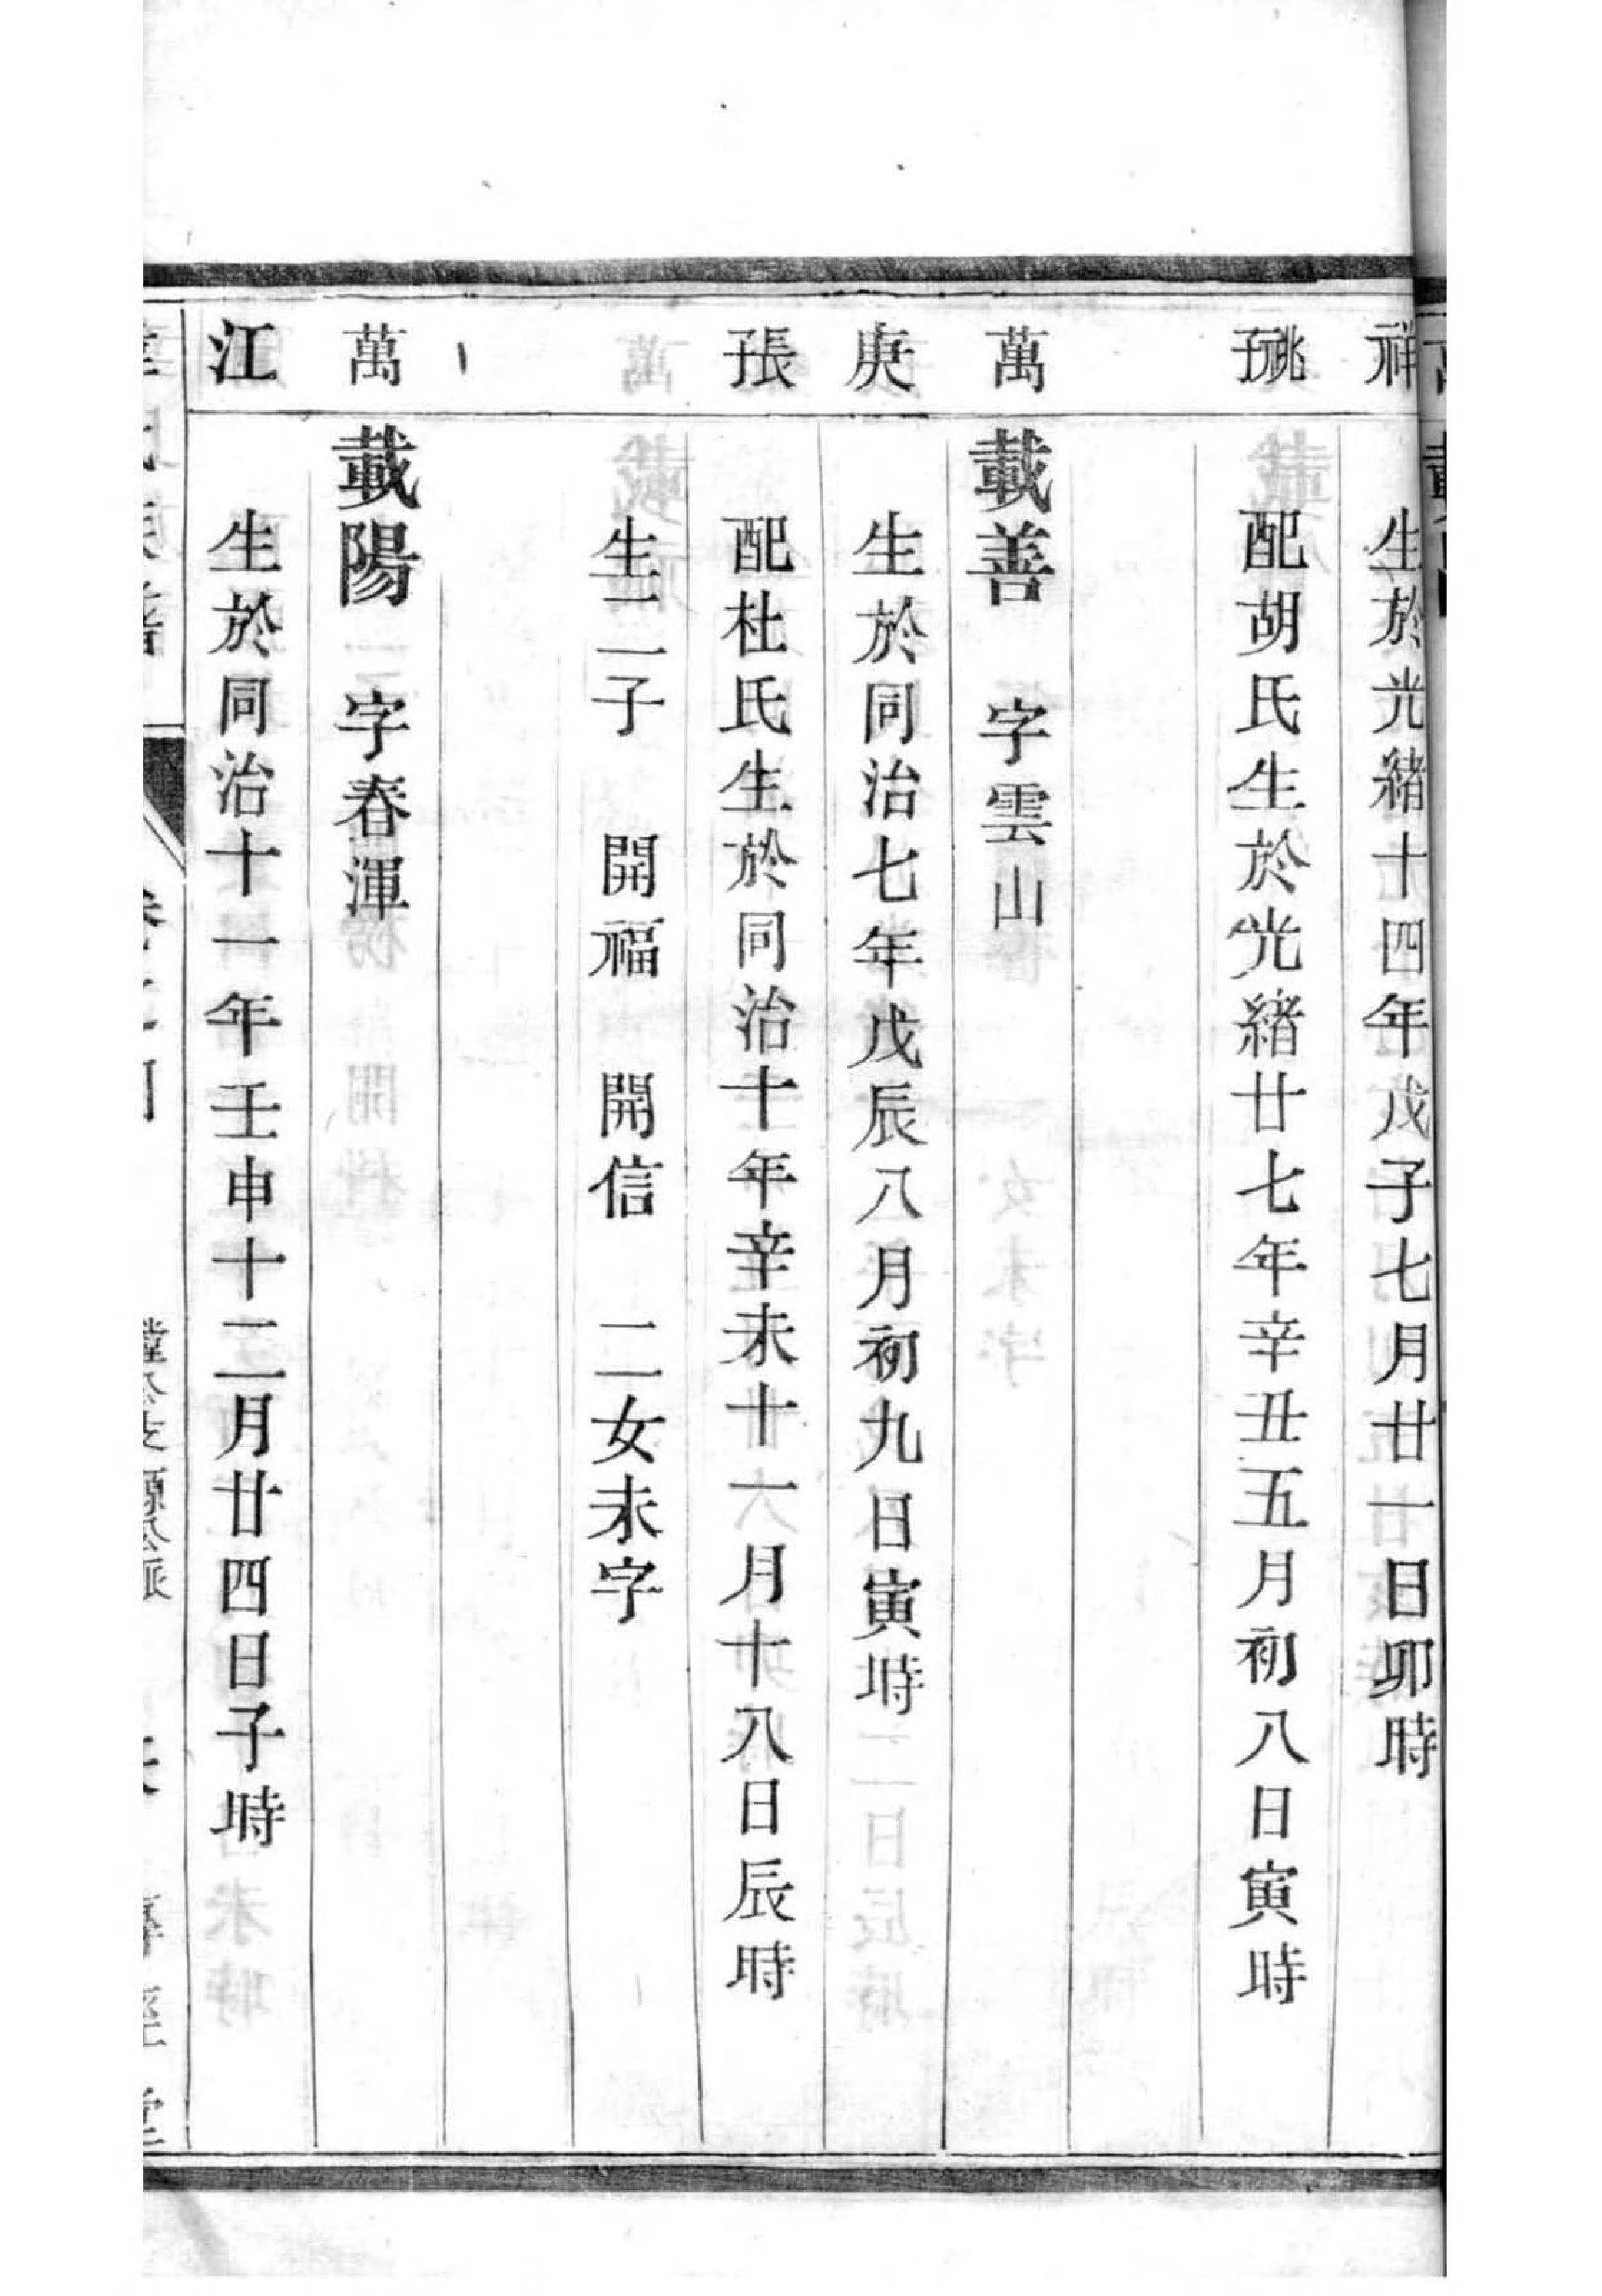 祥 生於光緒十四年戊子七月廿一日卯時
配胡氏生於光緒廿七年辛丑五月初八日寅時
萬 載善 字雲山
庚 生於同治七年戊辰八月初九日寅時
張子 配杜氏生於同治十年辛未十一月十八日辰時
生二子 開福 開信 二女未字
萬 載陽 字春渾
江 生於同治十一年壬申十二月廿四日子時